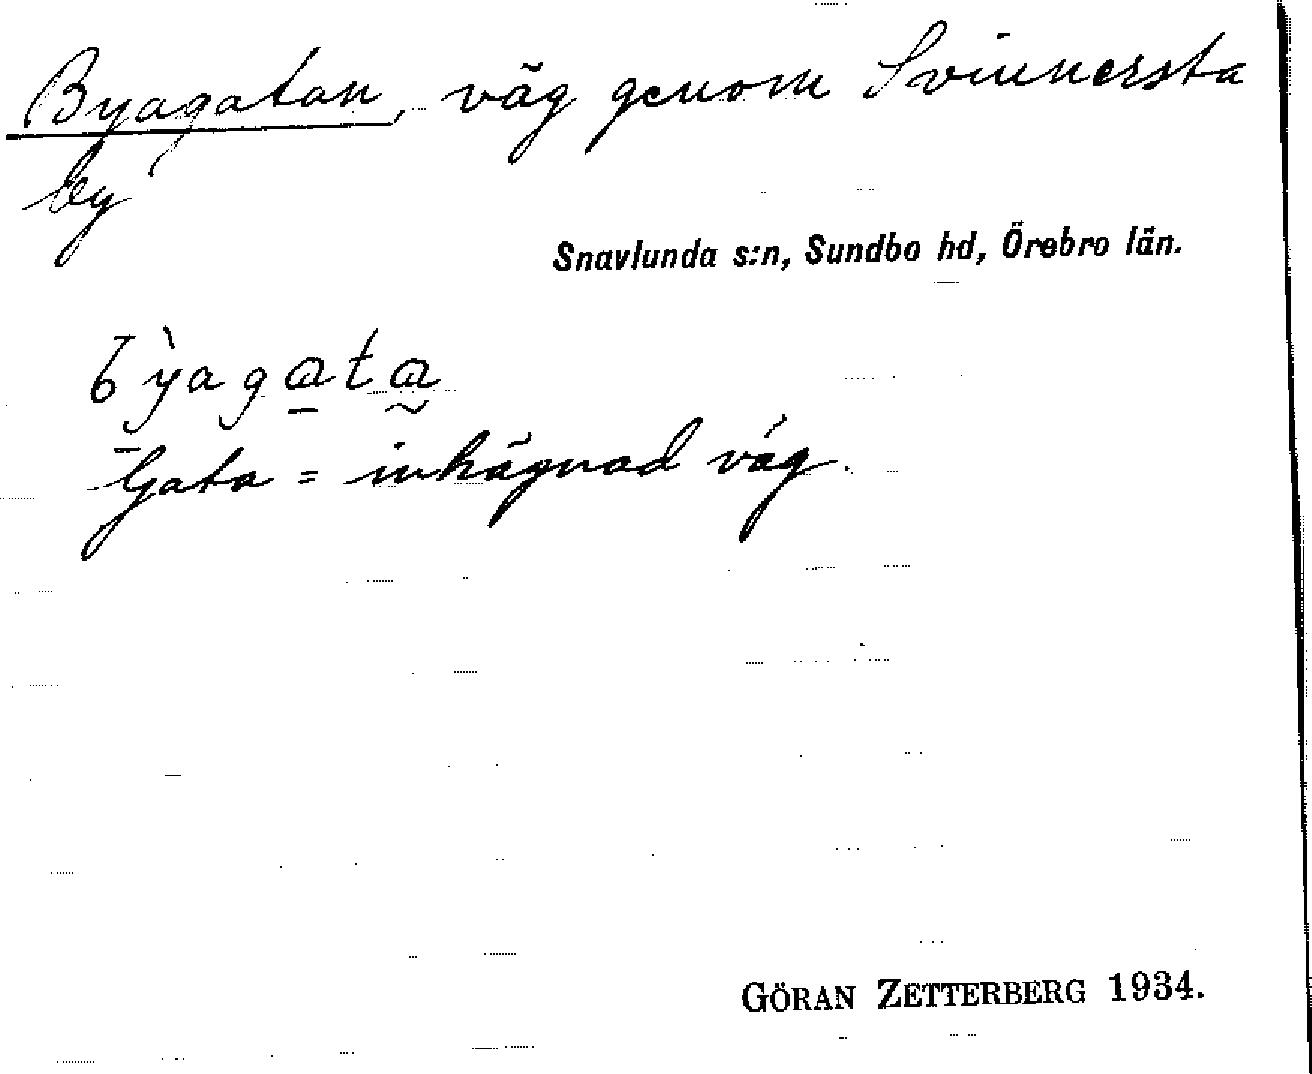 Byagatan, väg genom Svinnersta
by
Snavlunda s:n, Sundbo hd, Örebro län.
bỳagata
Gata = inhägnad väg.
GÖRAN ZETTERBERG 1934.